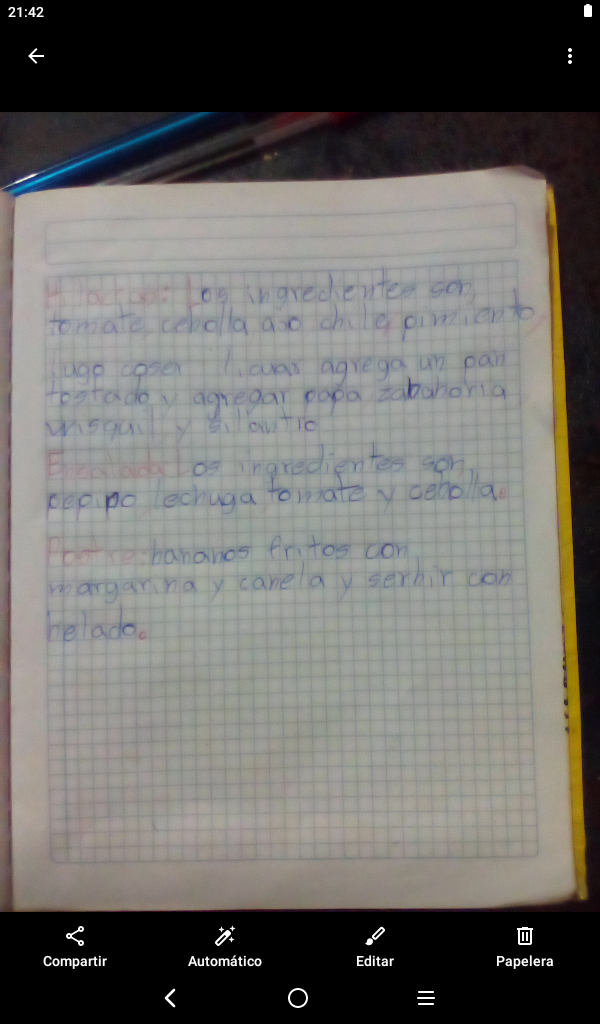 21:42
Los ingredientes son
tomate cebolla ajo chile pimiento
lugo coser licuar agrega un pan
tostado y agregar papa zabahoria
wisquil y silantro
Ensalada Los ingredientes son
pepino lechuga tomate y cebolla.
Postre: bananos fritos con
margarina y canela y serbir con
helado.
Compartir
Automático
Editar
Papelera